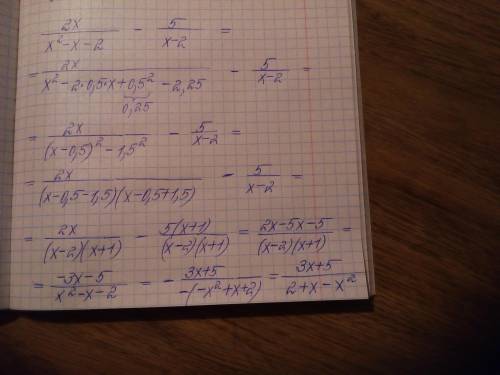 2x/(x²-x-2) - 5/(x-2) =
= 2x/(x²-2·0,5·x+0,5²-2,25) - 5/(x-2) =
0,25
= 2x/((x-0,5)²-1,5²) - 5/(x-2) =
= 2x/((x-0,5-1,5)(x-0,5+1,5)) - 5/(x-2) =
= 2x/((x-2)(x+1)) - 5(x+1)/((x-2)(x+1)) = (2x-5x-5)/((x-2)(x+1)) =
= (-3x-5)/(x²-x-2) = - (3x+5)/(-(-x²+x+2)) = (3x+5)/(2+x-x²)